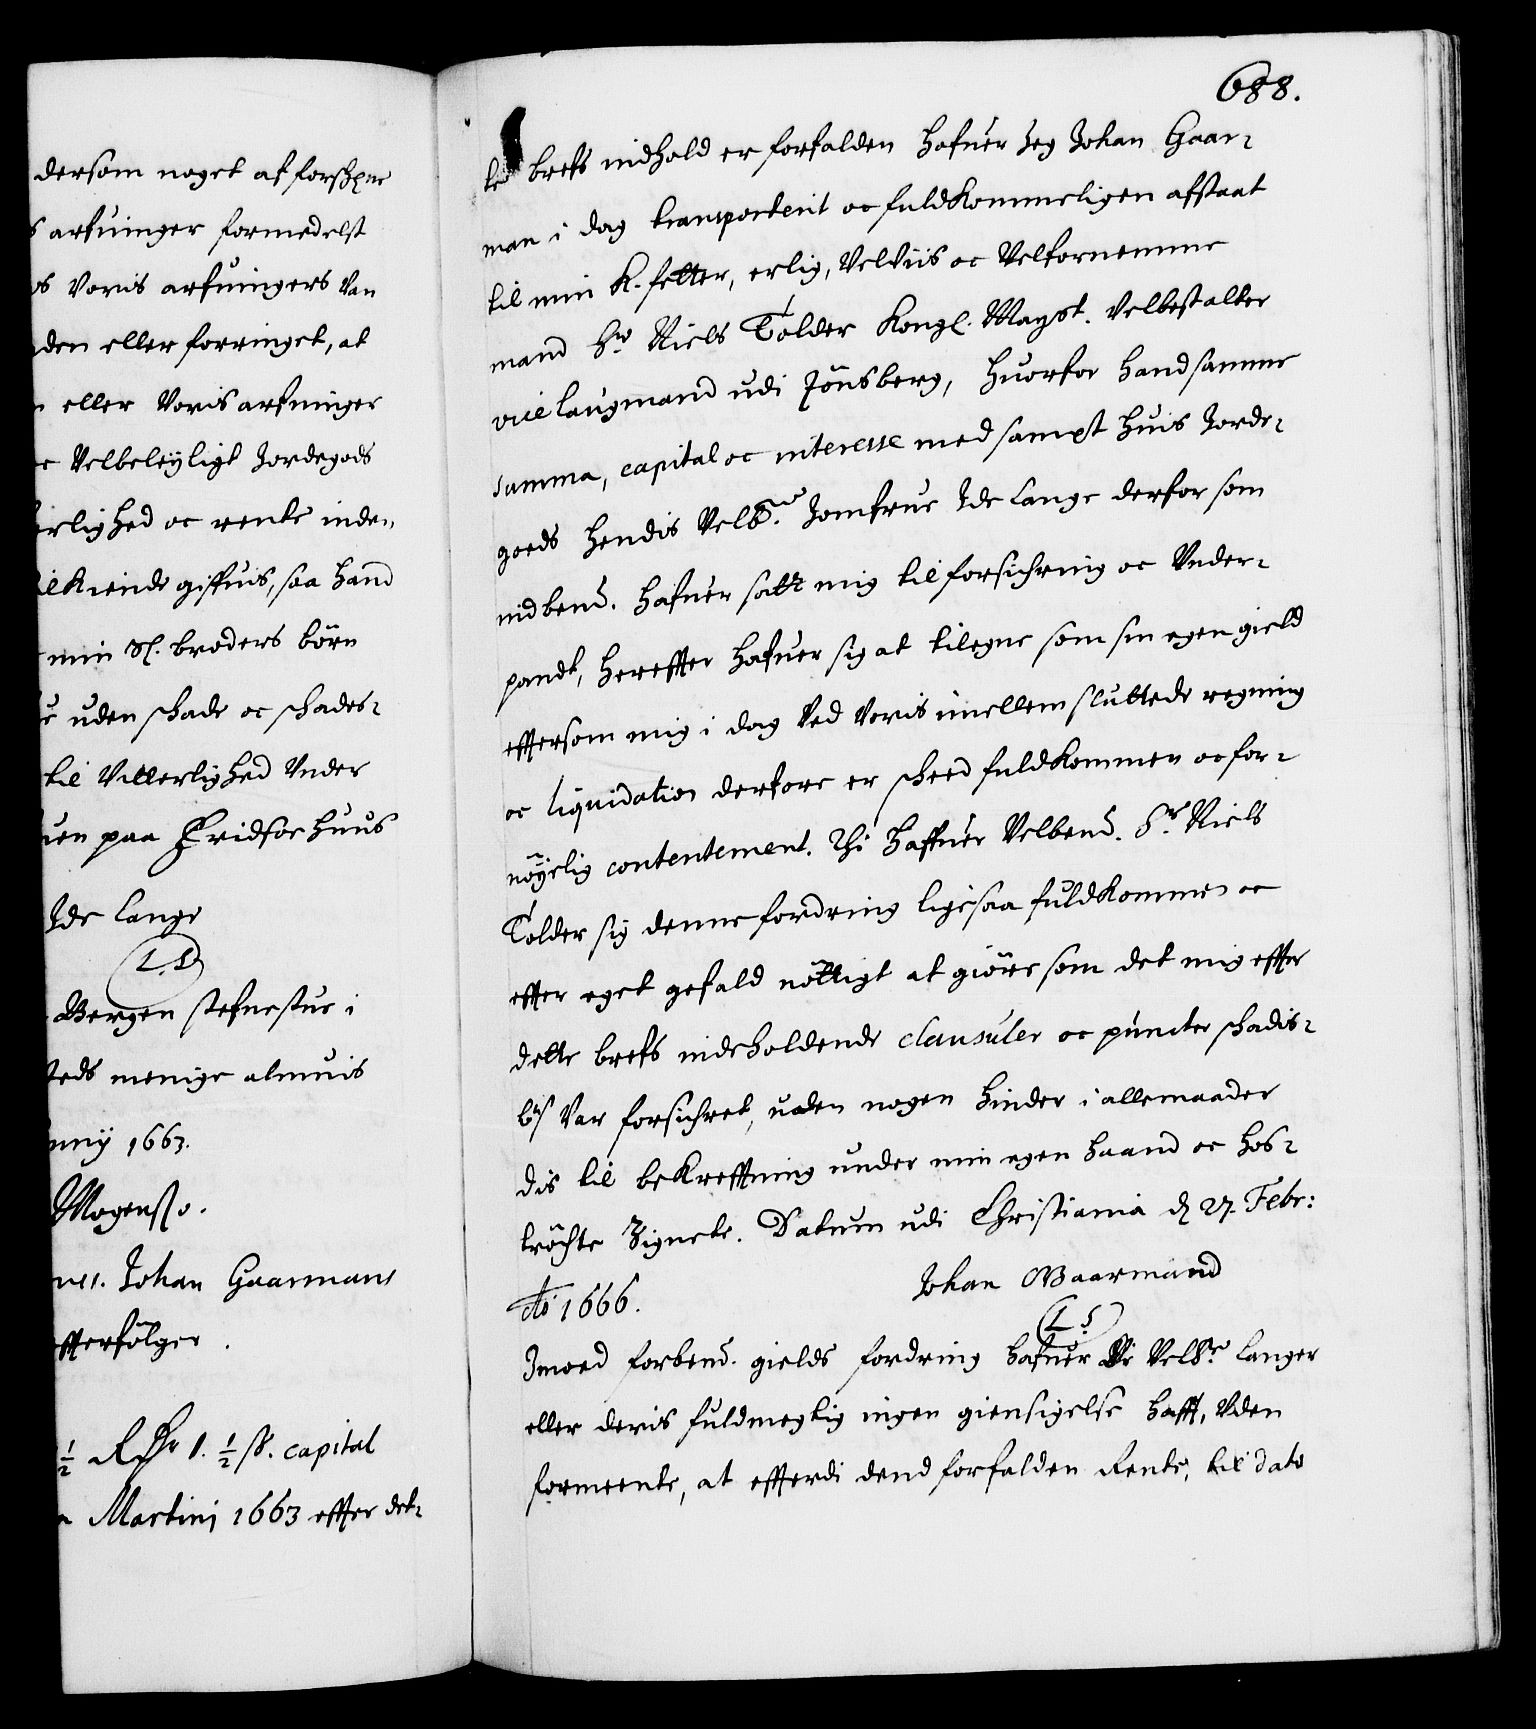 dersom noget af forschrne
s arfuinger formedelst
os voris arfuingers van
den eller forringet, at
n eller voris arfuinger
e velbeleyligt Jordegods
erlighed oc rente inden„
elkiende giffuis, saa hand
min Sl. broders börn
e uden schade oc schades-
til vitterlighed Under
uen paa Eridsøe huus
Ide Lange
L.S
Bergen stefnestue i
steds menige almuis
unij 1663.
Mogenssø.
nei. Johan Gaarmans
efterfölger.
½ Rdr 1. ½ ß. capital
a Martinj 1663 effter det-
688.
te brefs indhold er forfalden Hafuer Jeg Johan Gaar-
man i dag transporterit oc fuldkommeligen afstaat
til min K. fetter, erlig, velviis oc velfornemme
mand Hr Niels Tolder Kongl. Mayst. velbestalter
vice laugmand udi Tönsberg, huorfor hand samme
summa, capital oc interesse med sampt huis Jorde-
goeds hendis Velb. Jomfrue Ide Lange derfor som
indbend. hafuer satt mig til forsichring oc Under-
pandt, hereffter hafuer sig at tilegne som sin egen gield
effersom mig i dag ved voris imellem sluttede regning
oc liquidation derfore er scheed fuldkommen oc for-
nöyelig contentement. Thi haffuer velbend. Sr. Niels
Tolder sig denne fordring ligesaa fuldkommen oc
effter eget gefald nöttigt at giöre som det mig effter
dette brefs indeholdende clausuler oc puncter schadis-
löß var forsichret, uden nogen hinder i allemaader
dis til bekrefftning under min egen haand oc hos-
tröchte Zignete. Datum udi Christiania d 27. Febr:
Ao 1666.
Johan Gaarmand
L S
Imoed forbend. gields fordring hafuer De Velbe Langer
eller deris fuldmegtig ingen giensigelse hafft, Uden
formeente, at effterdi dend forfalden Rente, til dato